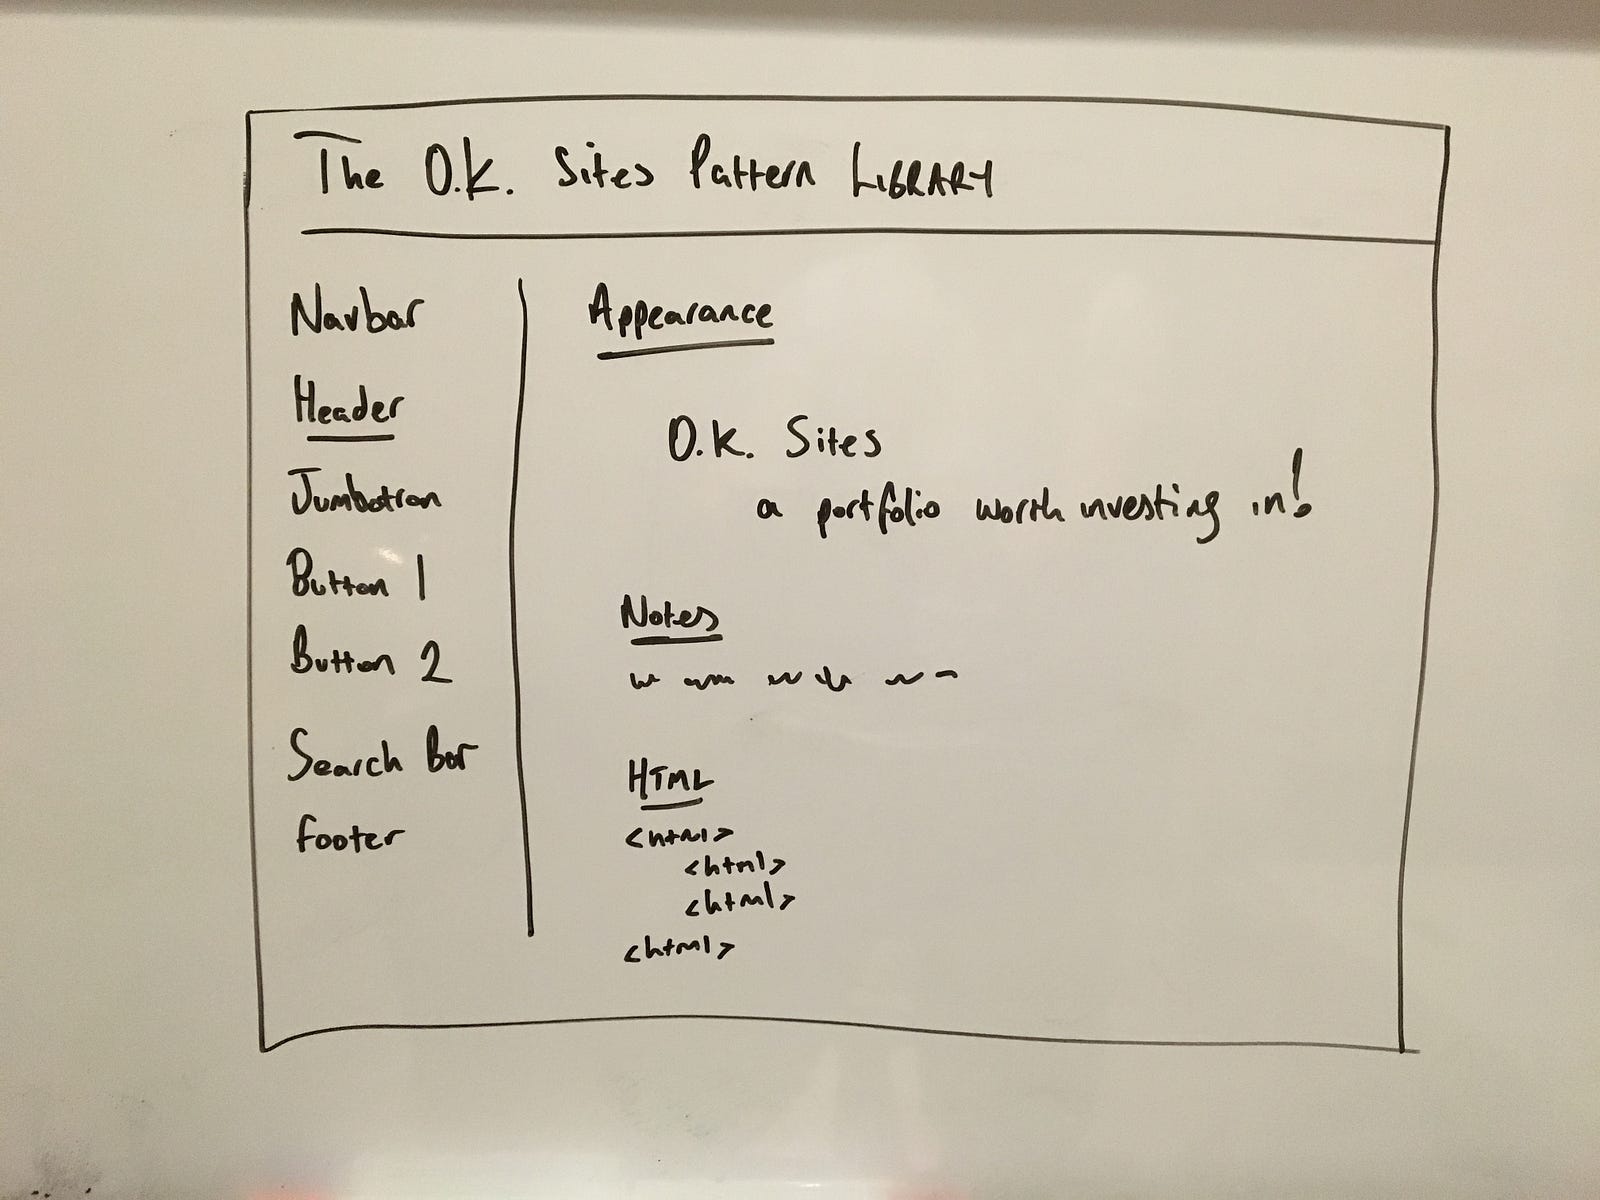 The O.K. Sites Pattern LIBRARY
Navbar
Header
Jumbotron
Button 1
Button 2
Search Bar
footer
Appearance
O.K. Sites
a portfolio worth investing in!
Notes
HTML
<html>
<html>
<html>
<html>